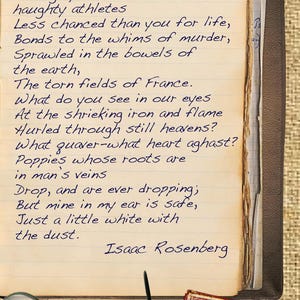 haughty athletes
Less chanced than you for life,
Bonds to the whims of murder,
Sprawled in the bowels of
the earth,
The torn fields of France.
What do you see in our eyes
At the shrieking iron and flame
Hurled through still heavens?
What quaver-what heart aghast?
Poppies whose roots are
in man's veins
Drop, and are ever dropping;
But mine in my ear is safe,
Just a little white with
the dust.
Isaac Rosenberg